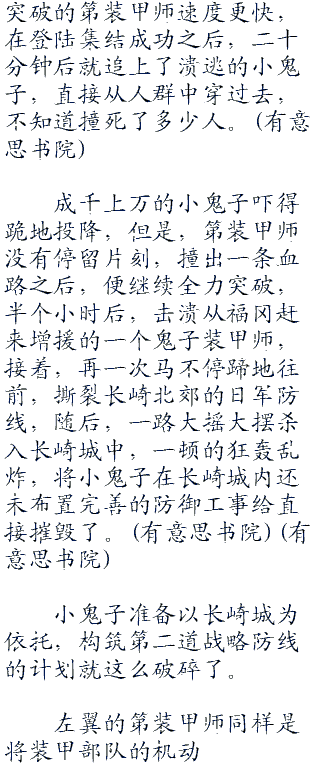 突破的第装甲师速度更快，
在登陆集结成功之后，二十
分钟后就追上了溃逃的小鬼
子，直接从人群中穿过去，
不知道撞死了多少人。(有意
思书院)
成千上万的小鬼子吓得
跪地投降，但是，第装甲师
没有停留片刻，撞出一条血
路之后，便继续全力突破，
半个小时后，击溃从福冈赶
来增援的一个鬼子装甲师，
接着，再一次马不停蹄地往
前，撕裂长崎北郊的日军防
线，随后，一路大摇大摆杀
入长崎城中，一顿的狂轰乱
炸，将小鬼子在长崎城内还
未布置完善的防御工事给直
接摧毁了。(有意思书院)(有
意思书院)
小鬼子准备以长崎城为
依托，构筑第二道战略防线
的计划就这么破碎了。
左翼的第装甲师同样是
将装甲部队的机动